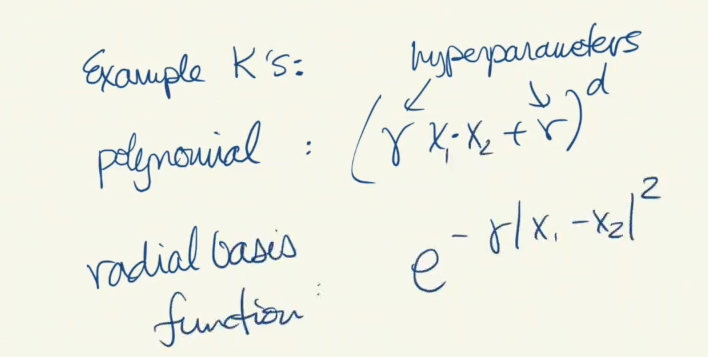 Example K's:
hyperparameters
polynomial : (γ x₁·x₂ + r)^d
radial basis
function: e^-γ|x₁-x₂|²